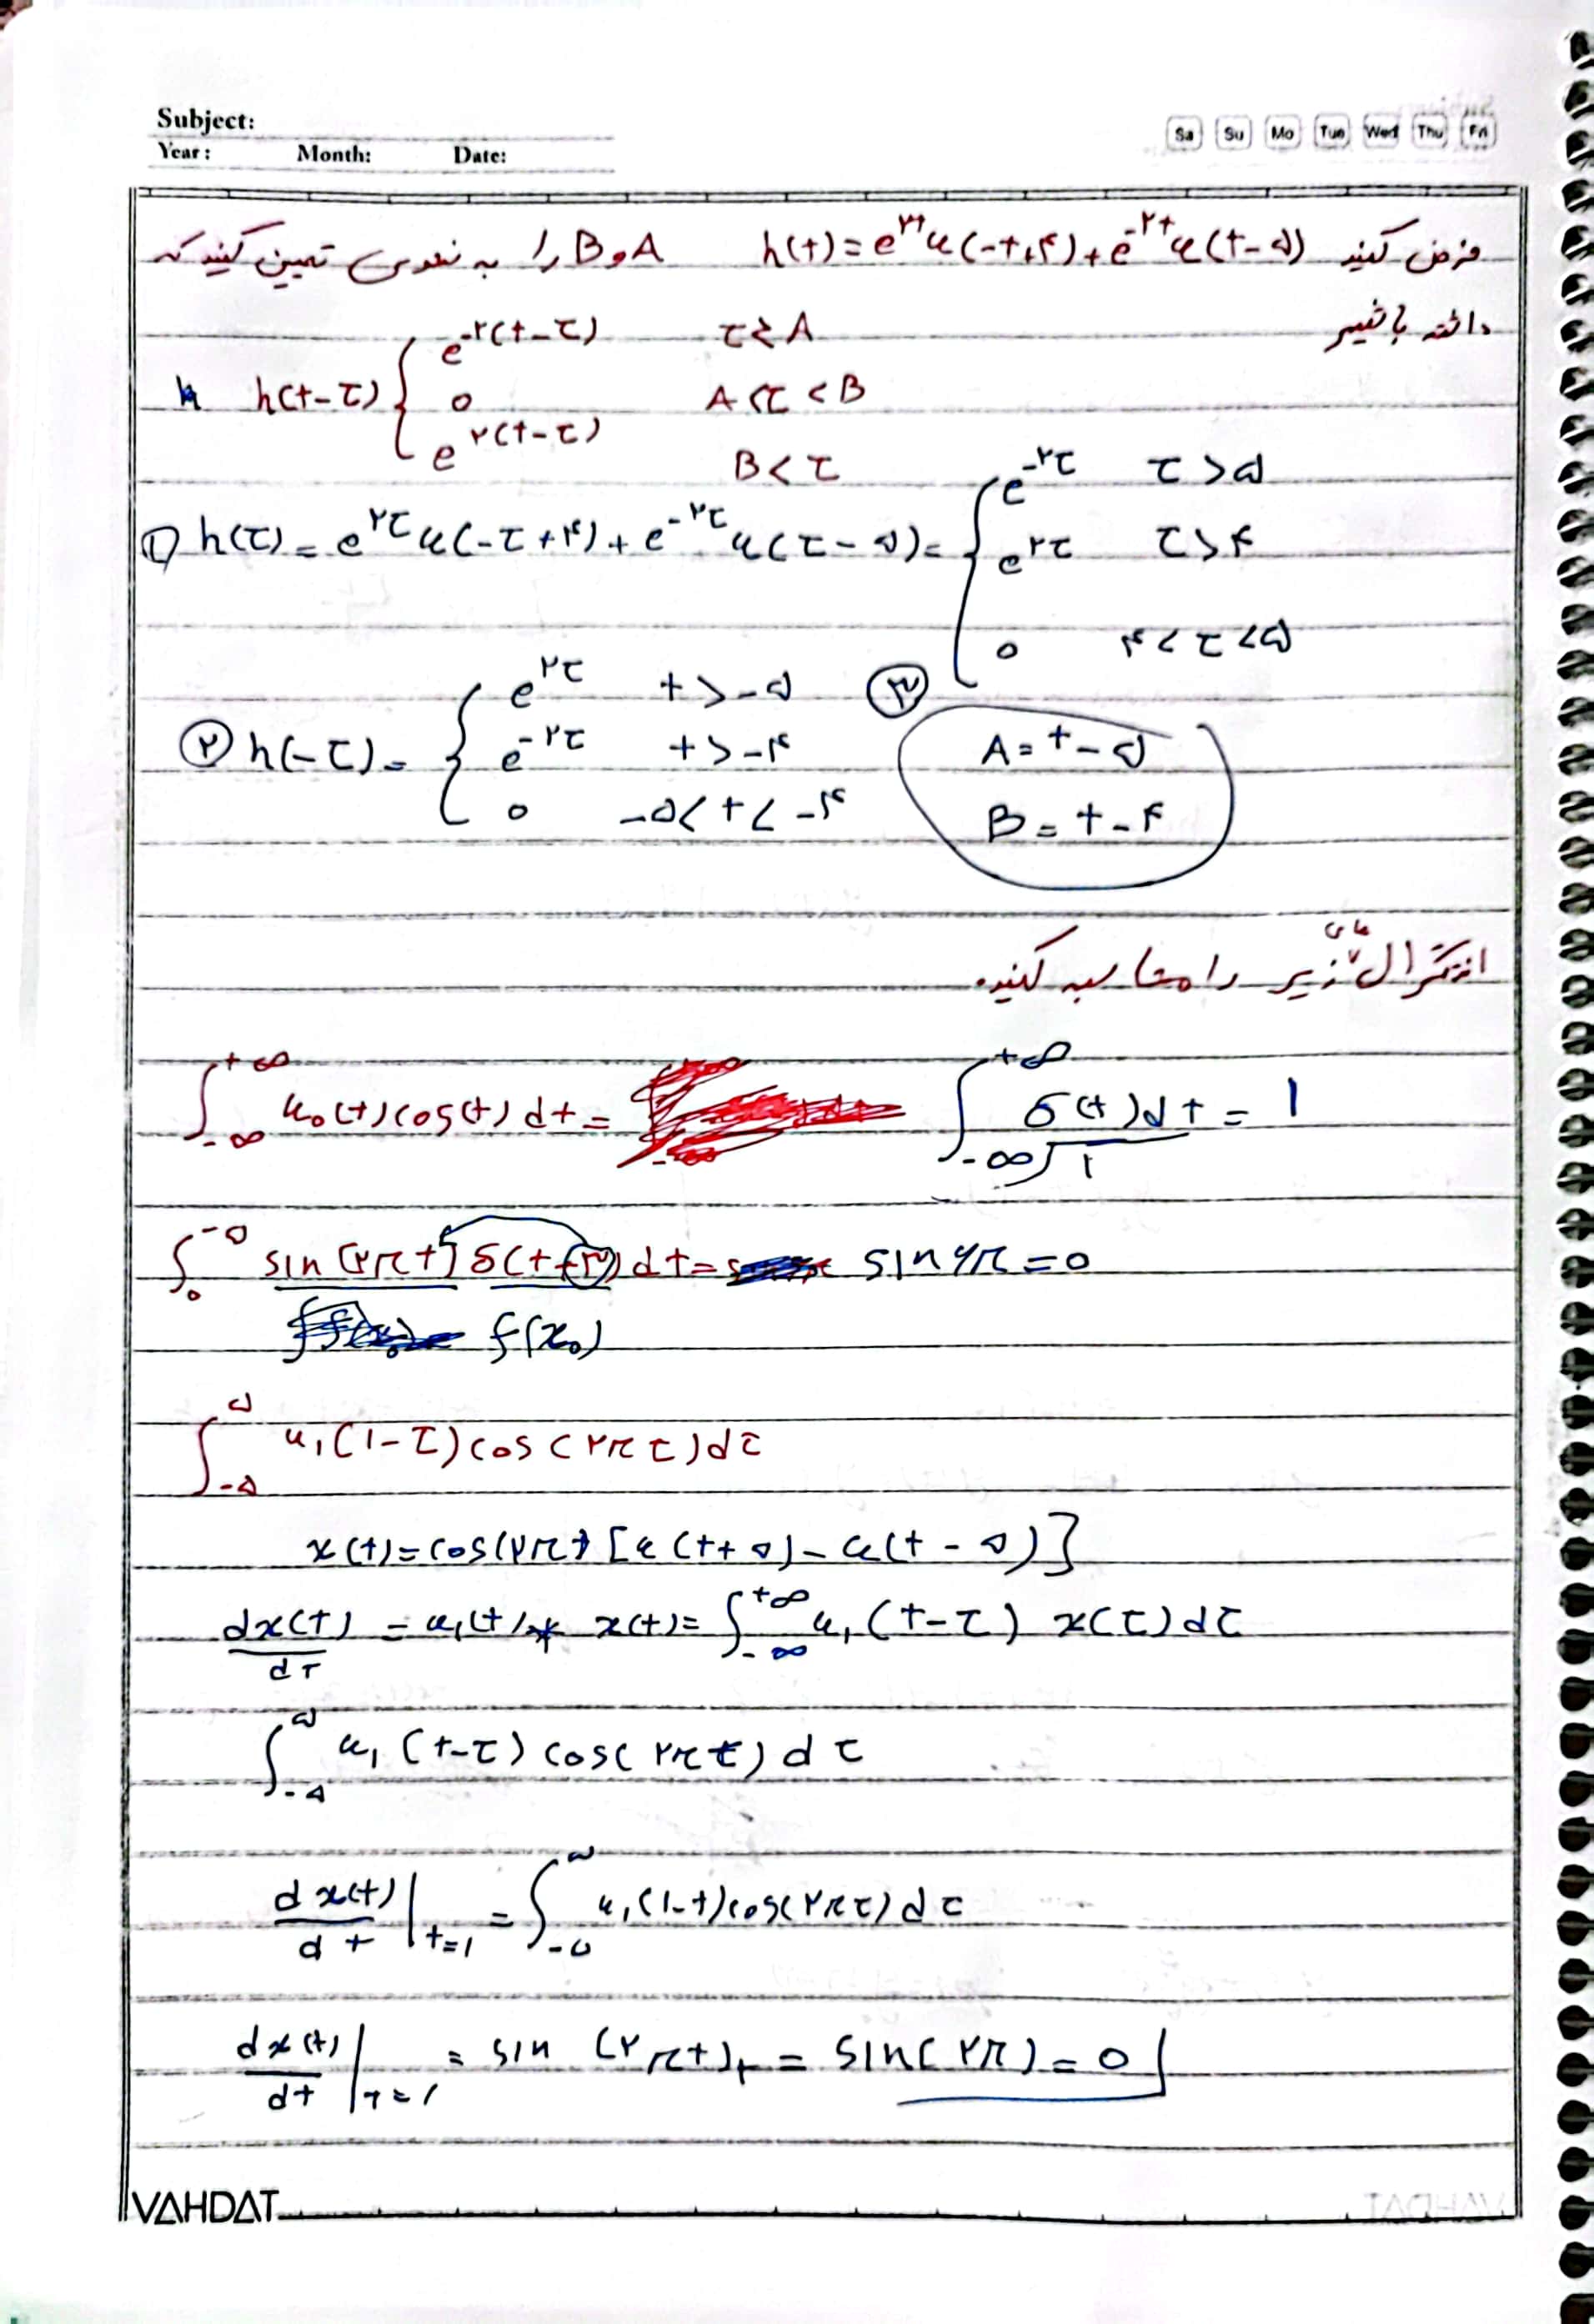 Subject:
Year: Month: Date:
Sa Su Mo Tue Wed Thu Fri
فرض کنید h(t) = e^{۲t} u(-t+۴) + e^{-۲t} u(t-۵) A و B را به نحوی تعیین کنید که
داشته باشیم
h(t-τ) { e^{-۲(t-τ)} τ < A
0 A < τ < B
e^{۲(t-τ)} B < τ
① h(τ) = e^{۲τ} u(-τ+۴) + e^{-۲τ} u(τ-۵) = { e^{-۲τ} τ > ۵
e^{۲τ} τ > ۴
0 ۴ < τ < ۵
② h(-τ) = { e^{۲τ} t > -۵
e^{-۲τ} t > -۴
0 -۵ < t < -۴
③ A = t - ۵
B = t - ۴
انتگرال های زیر را محاسبه کنید.
∫_{-∞}^{+∞} u₀(t) cos(t) dt = ∫_{-∞}^{+∞} δ(t) dt = 1
∫_0^{-۵} sin(۲πt) δ(t+۳) dt = sin ۶π = 0
f(x₀)
∫_{-۵}^{۵} u₁(1-τ) cos(۲πτ) dτ
x(t) = cos(۲πt) [u(t+۵) - u(t-۵)]
dx(t)/dτ = u₁(t) * x(t) = ∫_{-∞}^{+∞} u₁(t-τ) x(τ) dτ
∫_{-۵}^{۵} u₁(t-τ) cos(۲πτ) dτ
dx(t)/dt |_{t=1} = ∫_{-۵}^{۵} u₁(1-t) cos(۲πτ) dτ
dx(t)/dt |_{t=1} = sin (۲πt) = sin(۲π) = 0
VAHDAT